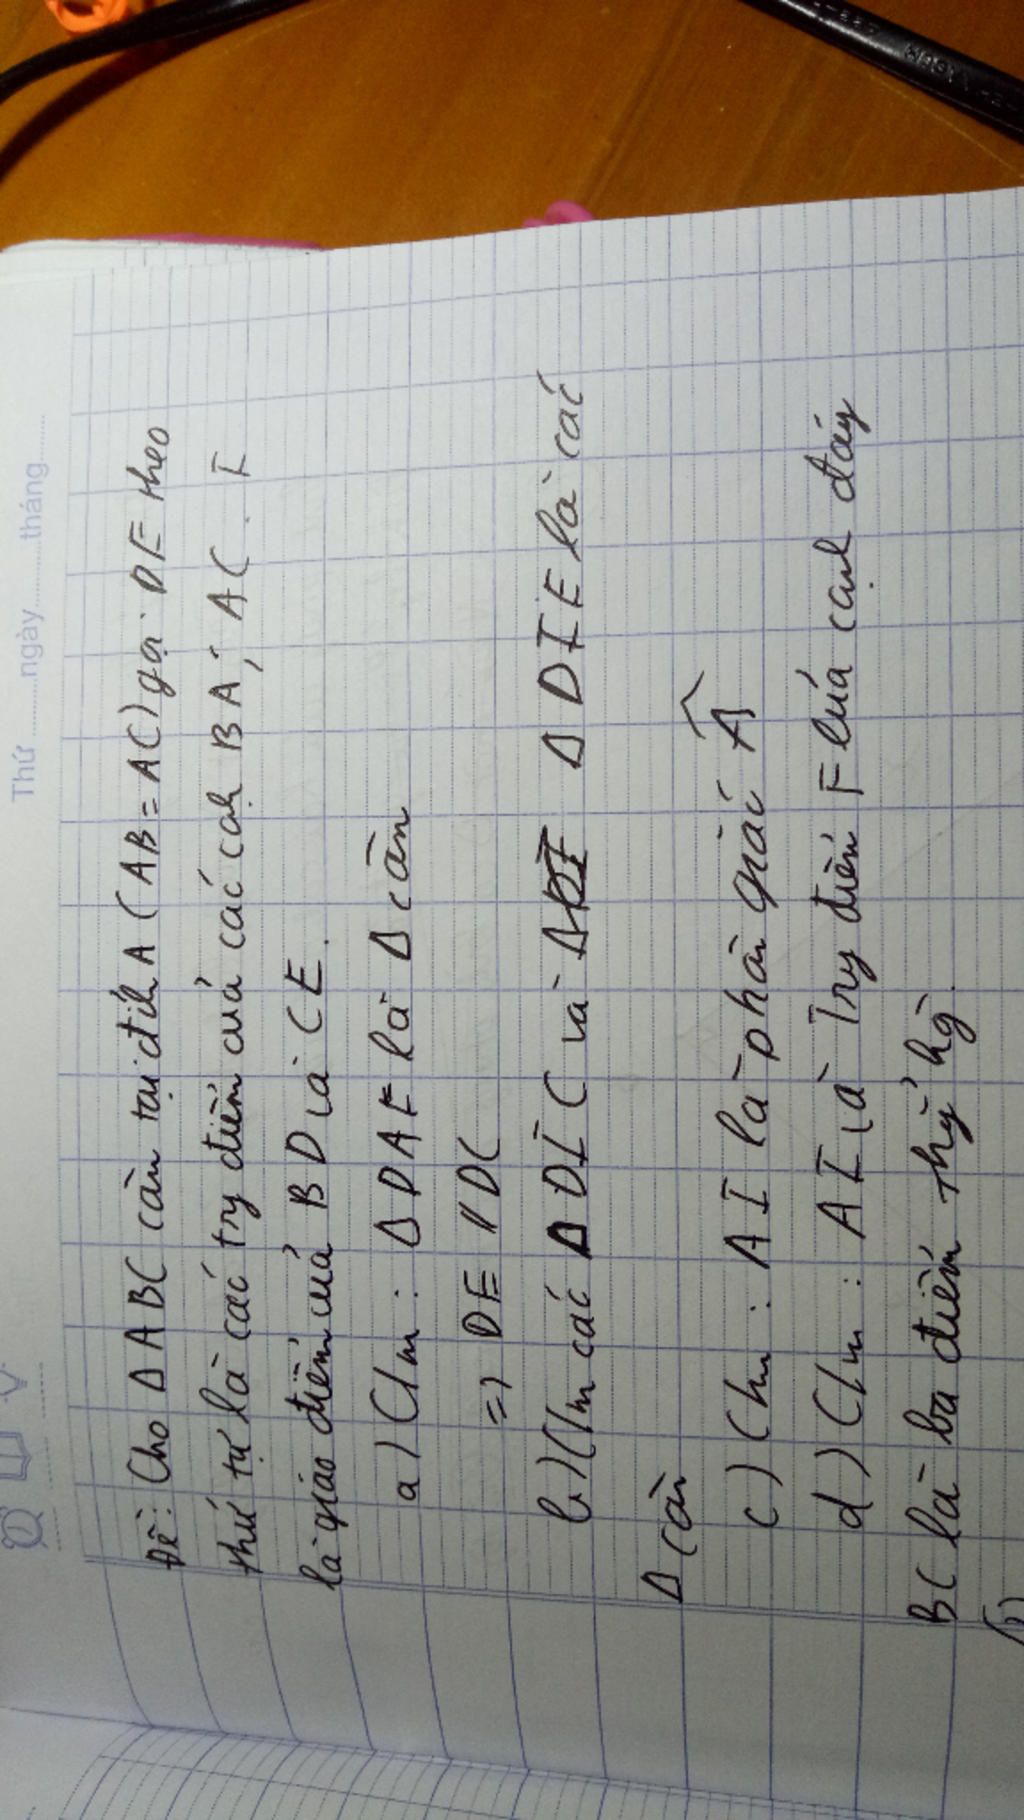 Thứ ........ngày ........tháng........
Đề: Cho Δ ABC cân tại đỉnh A (AB = AC) gọi DE theo
thứ tự là các try điểm của các cạh BA; AC. I
là giáo điểm của BD và CE.
a) C/m: Δ DAE là Δ cân
=> DE // DC
b) C/m các Δ DIC và Δ DIE là các
Δ cân
c) C/m: AI là phân giác Â
d) C/m: AI và Try điểm F của cạnh đáy
BC là ba điểm thẳ hg.